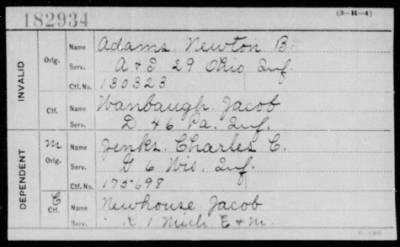 182934
(3-H-4)
INVALID
Orig.
Name Adams, Newton B
Serv. A & I 29 Ohio Inf.
Ctf. No. 130323
Ctf. Name Wanbaugh, Jacob
Serv. D. 46 Pa. Inf.
DEPENDENT
M
Orig.
Name Jenks, Charles C.
Serv. G 6 Wis. Inf.
Ctf. No. 175698
C
Ctf. Name Newhouse, Jacob
Serv. K 1 Mich. E & M.